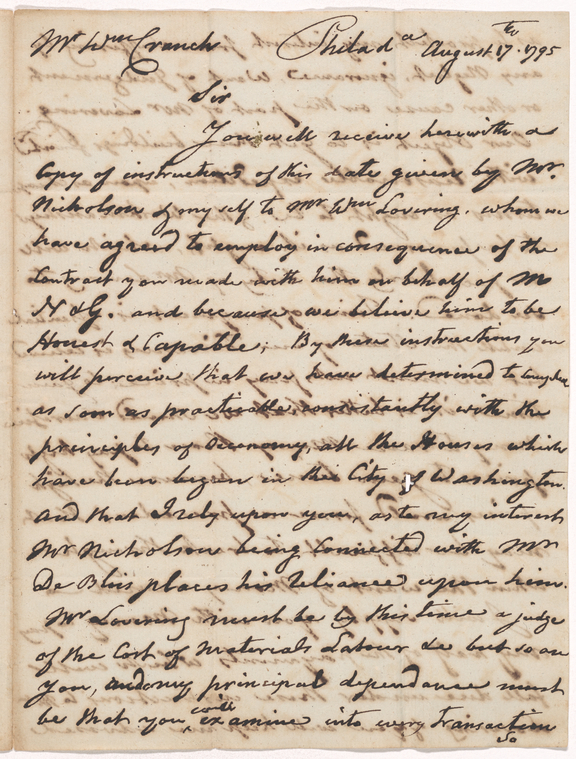 Mr Wm Cranch Philada August 17th 1795
Sir
You will receive herewith a
Copy of instructions of this date given by Mr.
Nicholson & my self to Mr Wm Lovering, whom we
have agreed to employ in consequence of the
Contract you made with him on behalf of M
N & G. and because we believe him to be
Honest & Capable; By these instructions you
will perceive that we have determined to
as soon as practicable, consistantly with the
principles of Oeconomy, all the Houses which
have been begun in the City of Washington.
And that I rely upon you, as to my interest
Mr Nicholson being Connected with Mr
De Blois places his reliance upon him.
Mr Lovering must be by this time a judge
of the Cost of Materials Labour &c but so are
you, and my principal dependance must
be that you could examine into every transaction
So